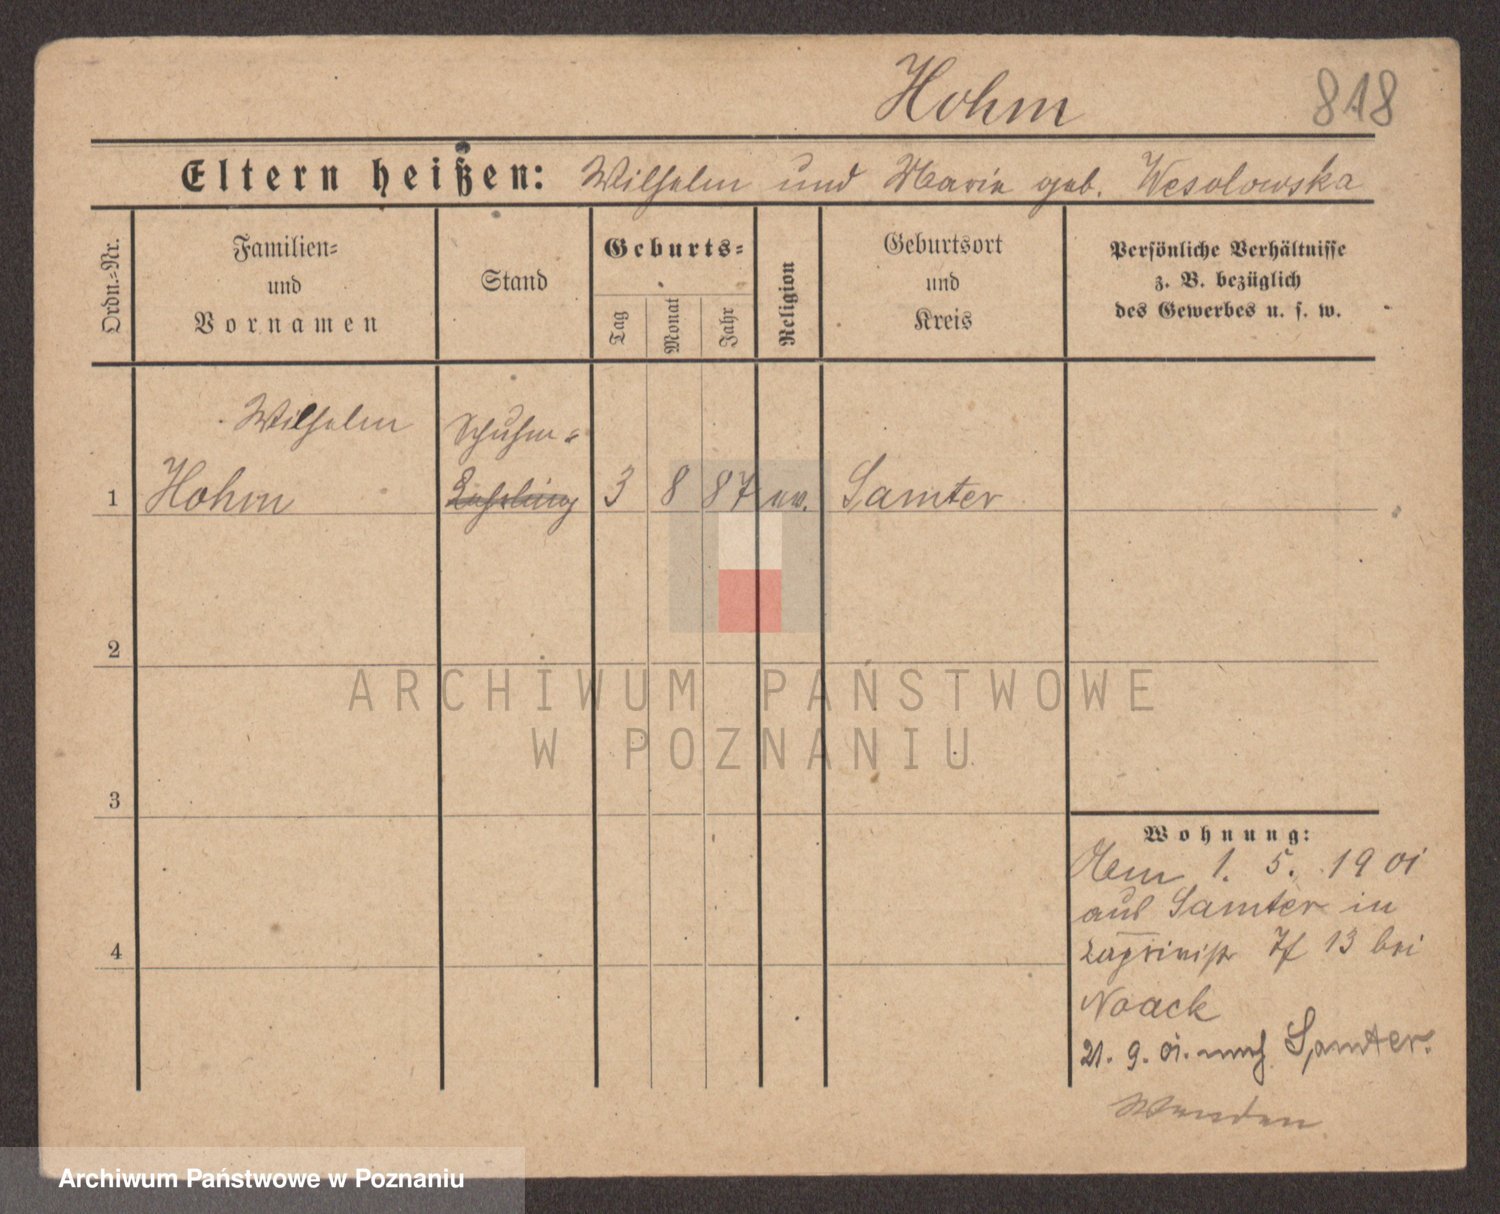 Hohm
818
Eltern heißen: Wilhelm und Marie geb. Wesolowska
Ordn.=Nr.
Familien=
und
Vornamen
Stand
Geburts=
Tag
Monat
Jahr
Religion
Geburtsort
und
Kreis
Persönliche Verhältnisse
z. B. bezüglich
des Gewerbes u. s. w.
Wilhelm
Schuhm=
1 Hohm Lehrling 3 8 87 ev. Samter
2
3
4
ARCHIWUM PAŃSTWOWE
W POZNANIU
Wohnung:
1. 5. 1901
aus Samter in
13 bei
Noack
21. 9. 01. nach Samter.
Wenden
Archiwum Państwowe w Poznaniu